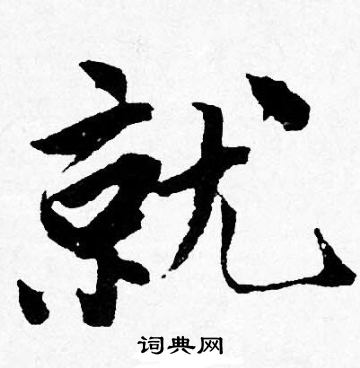 就
词典网